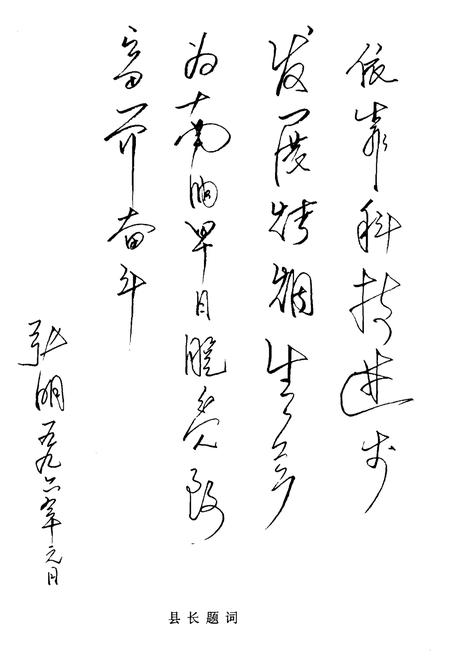 依靠科技进步
发展烤烟生产
为南涧早日脱贫致
富而奋斗
九六年元月
县长题词